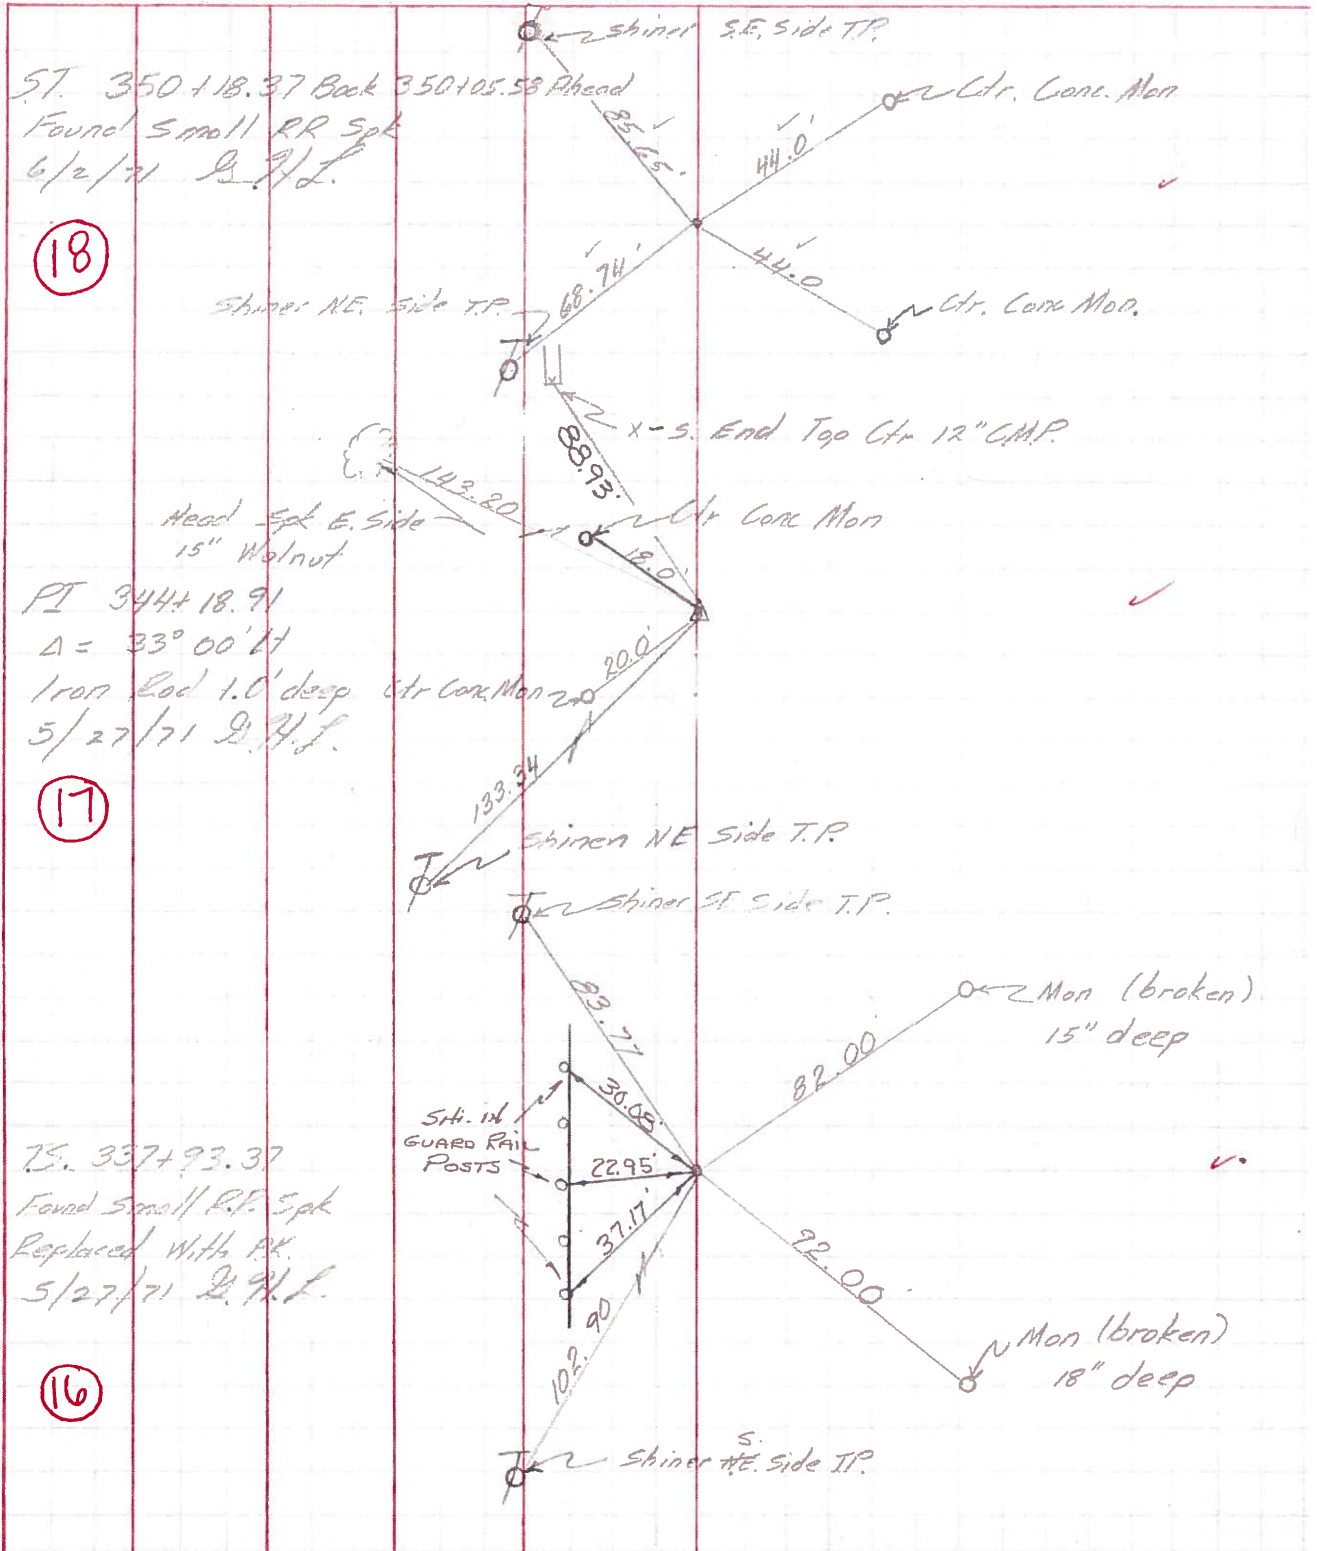 Shiner S.E. Side T.P.
ST. 350+18.37 Back 350+05.58 Ahead
Found Small RR Spk
6/2/71 G.H.L.
18
85.65'
44.0'
Ctr. Conc. Mon
68.74'
44.0
Shiner N.E. Side T.P.
Ctr. Conc Mon.
X-S. End Top Ctr 12" CMP.
88.93'
143.20
Head Spk E. Side
15" Walnut
Ctr Conc Mon
18.0'
PI 344+18.91
Δ = 33° 00' Lt
Iron Rod 1.0' deep
5/27/71 G.H.L.
17
20.0'
Ctr Conc. Mon
133.34
Shiner NE Side T.P.
Shiner SE Side T.P.
83.77
Mon (broken)
15" deep
82.00
SHI. IN
GUARD RAIL
POSTS
30.08'
22.95'
37.17'
T.S. 337+93.37
Found Small R.R. Spk
Replaced With P.K.
5/27/71 G.H.L.
16
92.00
102.90
Mon (broken)
18" deep
S.
Shiner NE. Side T.P.